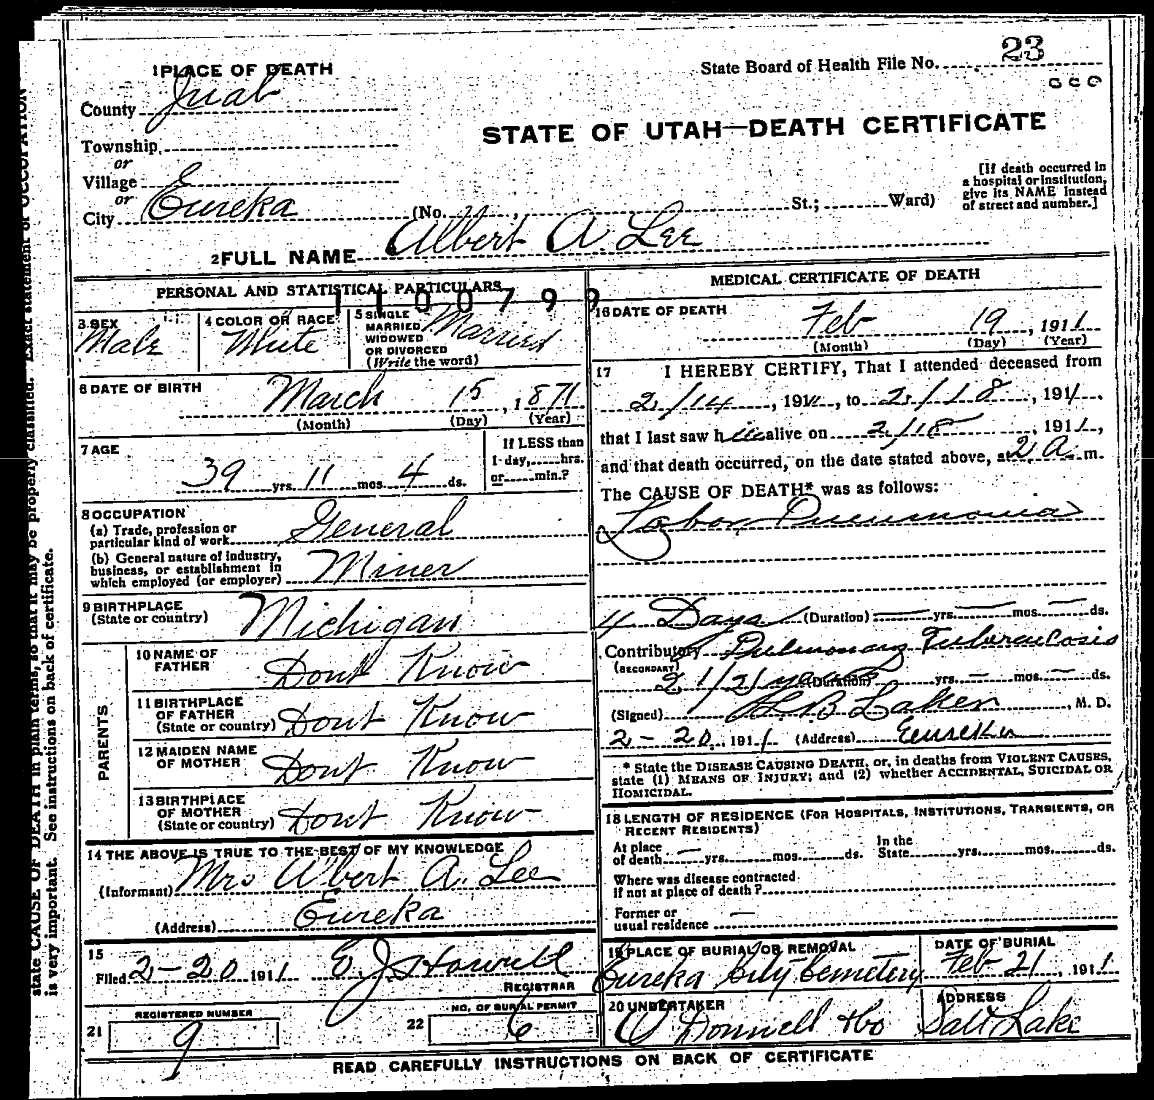 State Board of Health File No. 23
1 PLACE OF DEATH
County Juab
STATE OF UTAH—DEATH CERTIFICATE
Township
or
Village
or
City Eureka (No. , St.; Ward)
[If death occurred in
a hospital or institution,
give its NAME instead
of street and number.]
2 FULL NAME Albert A. Lee
PERSONAL AND STATISTICAL PARTICULARS
1100799
3 SEX Male
4 COLOR OR RACE White
5 SINGLE
MARRIED
WIDOWED
OR DIVORCED
(Write the word) Married
6 DATE OF BIRTH March 15, 1871
(Month) (Day) (Year)
7 AGE
39 yrs. 11 mos. 4 ds.
If LESS than
1 day, hrs.
or min.?
8 OCCUPATION
(a) Trade, profession or
particular kind of work General
(b) General nature of industry,
business, or establishment in
which employed (or employer) Miner
9 BIRTHPLACE
(State or country) Michigan
PARENTS
10 NAME OF
FATHER Dont Know
11 BIRTHPLACE
OF FATHER
(State or country) Dont Know
12 MAIDEN NAME
OF MOTHER Dont Know
13 BIRTHPLACE
OF MOTHER
(State or country) Dont Know
14 THE ABOVE IS TRUE TO THE BEST OF MY KNOWLEDGE
(Informant) Mrs Albert A. Lee
(Address) Eureka
15
Filed 2-20 1911 E J Howell
REGISTRAR
21 REGISTERED NUMBER 9
22 NO. OF BURIAL PERMIT 6
MEDICAL CERTIFICATE OF DEATH
16 DATE OF DEATH Feb 19, 1911
(Month) (Day) (Year)
17 I HEREBY CERTIFY, That I attended deceased from
2/14, 1911, to 2/18, 1911.
that I last saw him alive on 2/18, 1911,
and that death occurred, on the date stated above, at 2 A. m.
The CAUSE OF DEATH* was as follows:
Lobar Pneumonia
4 Days (Duration) yrs. mos. ds.
Contributory Pulmonary Tuberculosis
(SECONDARY)
2 1/2 years (Duration) yrs. mos. ds.
(Signed) , M. D.
2-20, 1911 (Address) Eureka
* State the DISEASE CAUSING DEATH, or, in deaths from VIOLENT CAUSES,
state (1) MEANS OF INJURY; and (2) whether ACCIDENTAL, SUICIDAL OR
HOMICIDAL.
18 LENGTH OF RESIDENCE (FOR HOSPITALS, INSTITUTIONS, TRANSIENTS, OR
RECENT RESIDENTS)
At place
of death yrs. mos. ds.
In the
State yrs. mos. ds.
Where was disease contracted
If not at place of death?
Former or
usual residence
19 PLACE OF BURIAL OR REMOVAL
Eureka City Cemetery
DATE OF BURIAL
Feb 21, 1911
20 UNDERTAKER
O Donnell & Co
ADDRESS
Salt Lake
READ CAREFULLY INSTRUCTIONS ON BACK OF CERTIFICATE
state CAUSE OF DEATH in plain terms, so that it may be properly classified. Exact statement of OCCUPATION
is very important. See instructions on back of certificate.